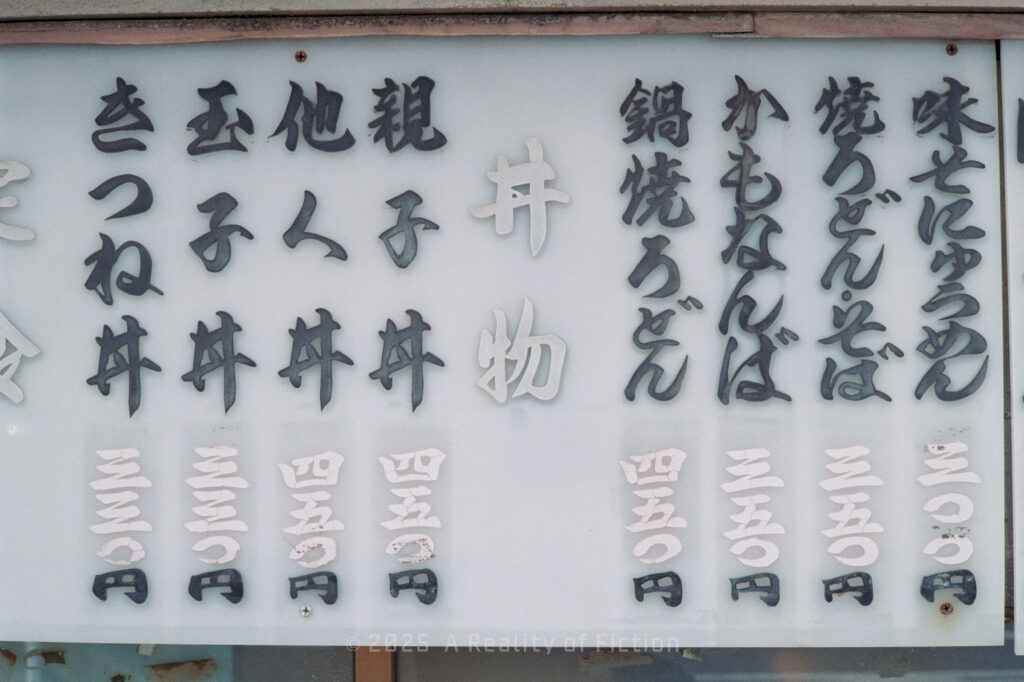 味そにゅうめん 三〇〇円
焼うどん・そば 三五〇円
かもなんば 三五〇円
鍋焼うどん 四五〇円
丼物
親子丼 四五〇円
他人丼 四五〇円
玉子丼 三三〇円
きつね丼 三三〇円
© 2025 A Reality of Fiction